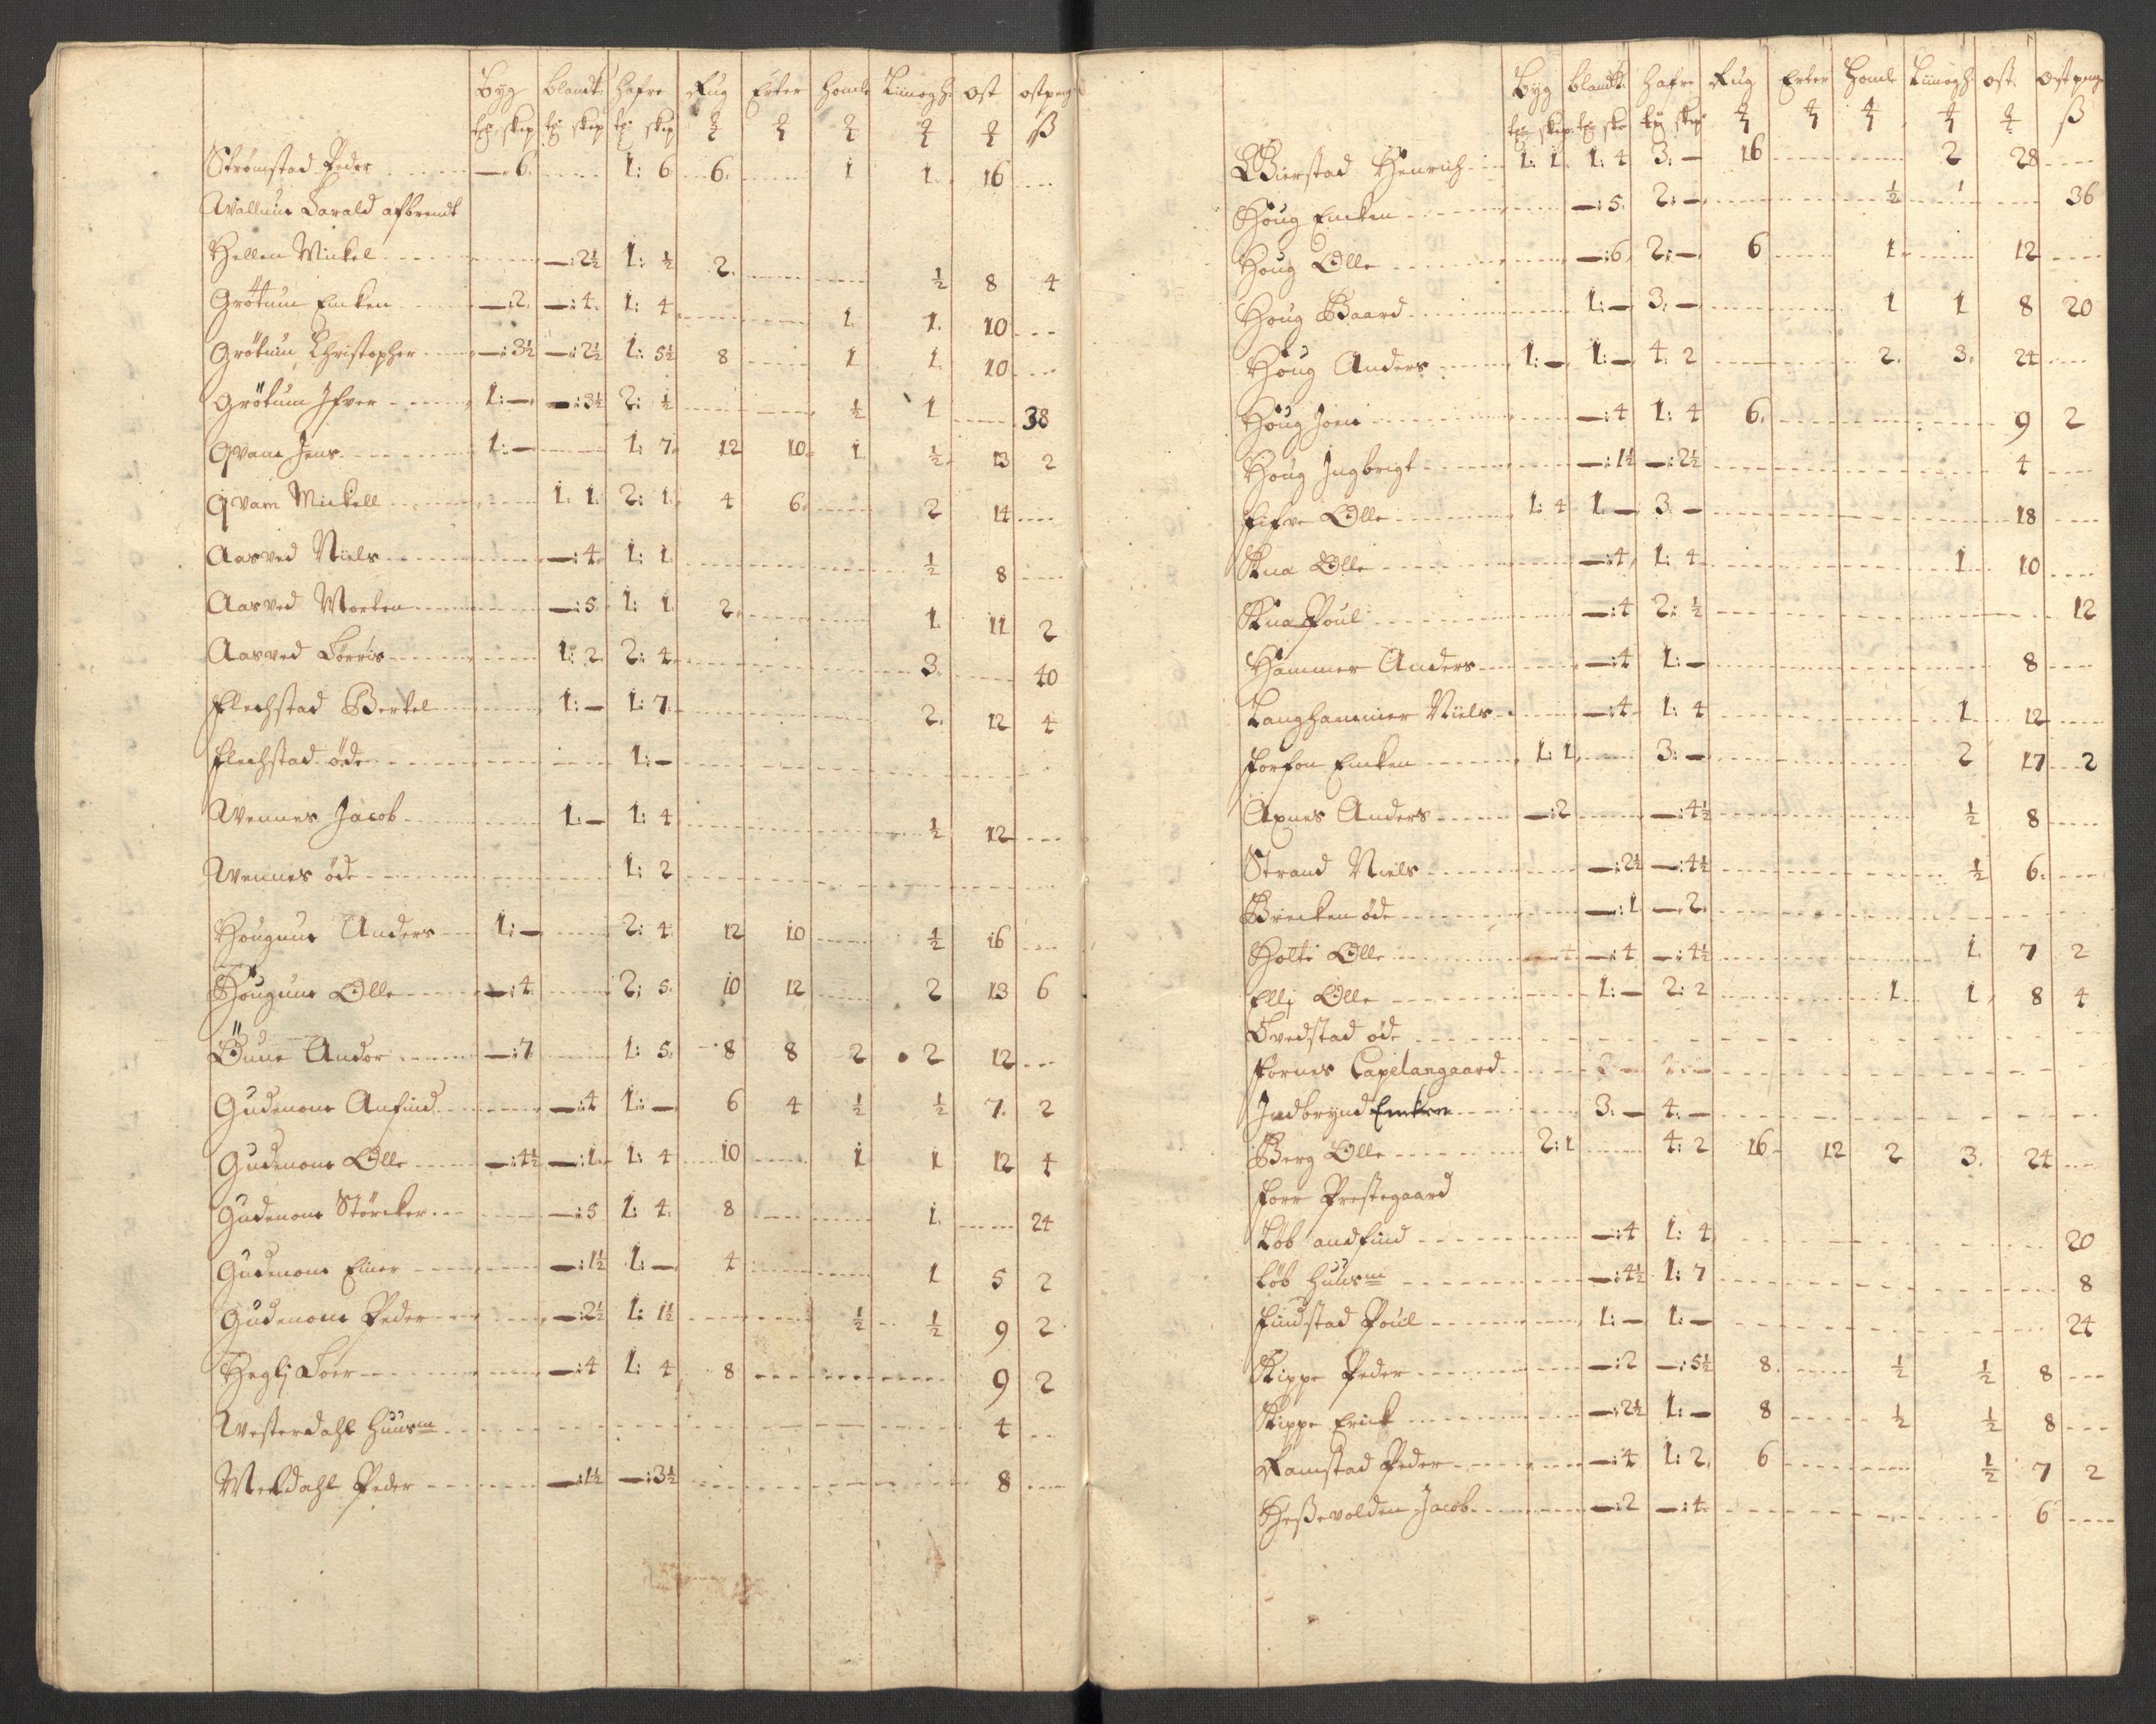 Byg blandt hafre Rug Erter homle Liinogh ost ostpeng
tø skep tø skep tø skep ß
Strømstad Peder —: 6. 1: 6 6. 1 1. 16
Wallum Harald afbrendt
Hellen Mickel —:2½ 1: ½ 2. ½ 8 4
Grötum Encken —:2. —:4. 1: 4 1. 1. 10
Grötum Christopher —:3½ —:2½ 1: 5½ 8 1 1. 10
Grötum Ifver 1:— —:3½ 2: ½ ½ 1 38
Qvam Jens 1:— 1: 7. 12 10. 1. ½. 13 2
Qvam Mickell 1: 1. 2: 1. 4 6. 2 14
Aasved Niels —:4. 1: 1. ½ 8
Aasved Morten —:5. 1: 1. 2. 1. 11 2
Aasved 1: 2. 2: 4. 3. 40
Flechstad Bertel 1:— 1: 7. 2. 12 4
Flechstad öde 1:—
Wennes Jacob 1:— 1: 4 ½ 12
Wennes öde 1: 2
Hougum Anders 1:— 2: 4. 12 10 ½ 16
Hougum Olle —:4. 2: 5. 10 12 2 13 6
Öune Andor —:7. 1: 5. 8 8 2 2 12
Gudenom Anfind —:4 1:— 6 4 ½ ½ 7. 2
Gudenom Olle —:4½ —:1. 1: 4 10 1 1 12 4
Gudenom Störcker —:5 1: 4. 8 1. 24
Gudenom Einer —:1½ 1:— 4 1 5 2
Gudenom Peder —:2½ 1: 1½ ½ ½ 9 2
Heglj —:4 1: 4 8 9 2
Westerdahl Huusm 4
Meldahl Peder —:1½ —:3½ 8
Byg blandt hafre Rug Erter Homle Liinogh ost. Ost peng
tø skep tø ske tø skep ß
Bierstad Henrich 1: 1. 1: 4 3:— 16 2 28
Houg Encken —:5. 2:— ½ 1 36
Houg Olle —:6. 2:— 6 1. 12
Houg Baard 1:— 3:— 1 1 8 20
Houg Anders 1:— 1:— 4: 2 2. 3. 24
Houg Joen —:4 1: 4 6. 9 2
Houg Ingbrigt —:1½ —:2½ 4
Fifve Olle 1: 4 1:— 3:— 18
Olle —:4 1: 4 1 10
Poul —:4 2: ½ 12
Hammer Anders —:4 1:— 8
Langhammer Niels —:4 1: 4 1 12
Forfon Encken 1: 1. 3:— 2 17 2
Axnes Anders —:2 —:4½ ½ 8
Strand Niels —:2½ —:4½ ½ 6.
Brecken öde —:1 —:2.
Holte Olle —:4 —:4½ 1. 7 2
Ellj Olle 1:— 2: 2 1. 1. 8 4
Tvedstad öde
Fornes Capelangaard 2— 2:—
Indbrynd Encken 3.— 4.—
Berg Olle 2: 1 4: 2 16 12 2 3. 24
Forr Prestegaard
Löb andfind —:4 1: 4 20
Löb Huusm —:4½ 1: 7 8
Findstad Poul 1:— 1:— 24
Kippe Peder —:2 —:5½ 8. ½ ½ 8
Kippe Erick —:2½ 1:— 8 ½ ½ 8
Ramstad Peder —:4 1: 2. 6 ½ 7 2
Heßevolden Jacob —:2 —:4. 6